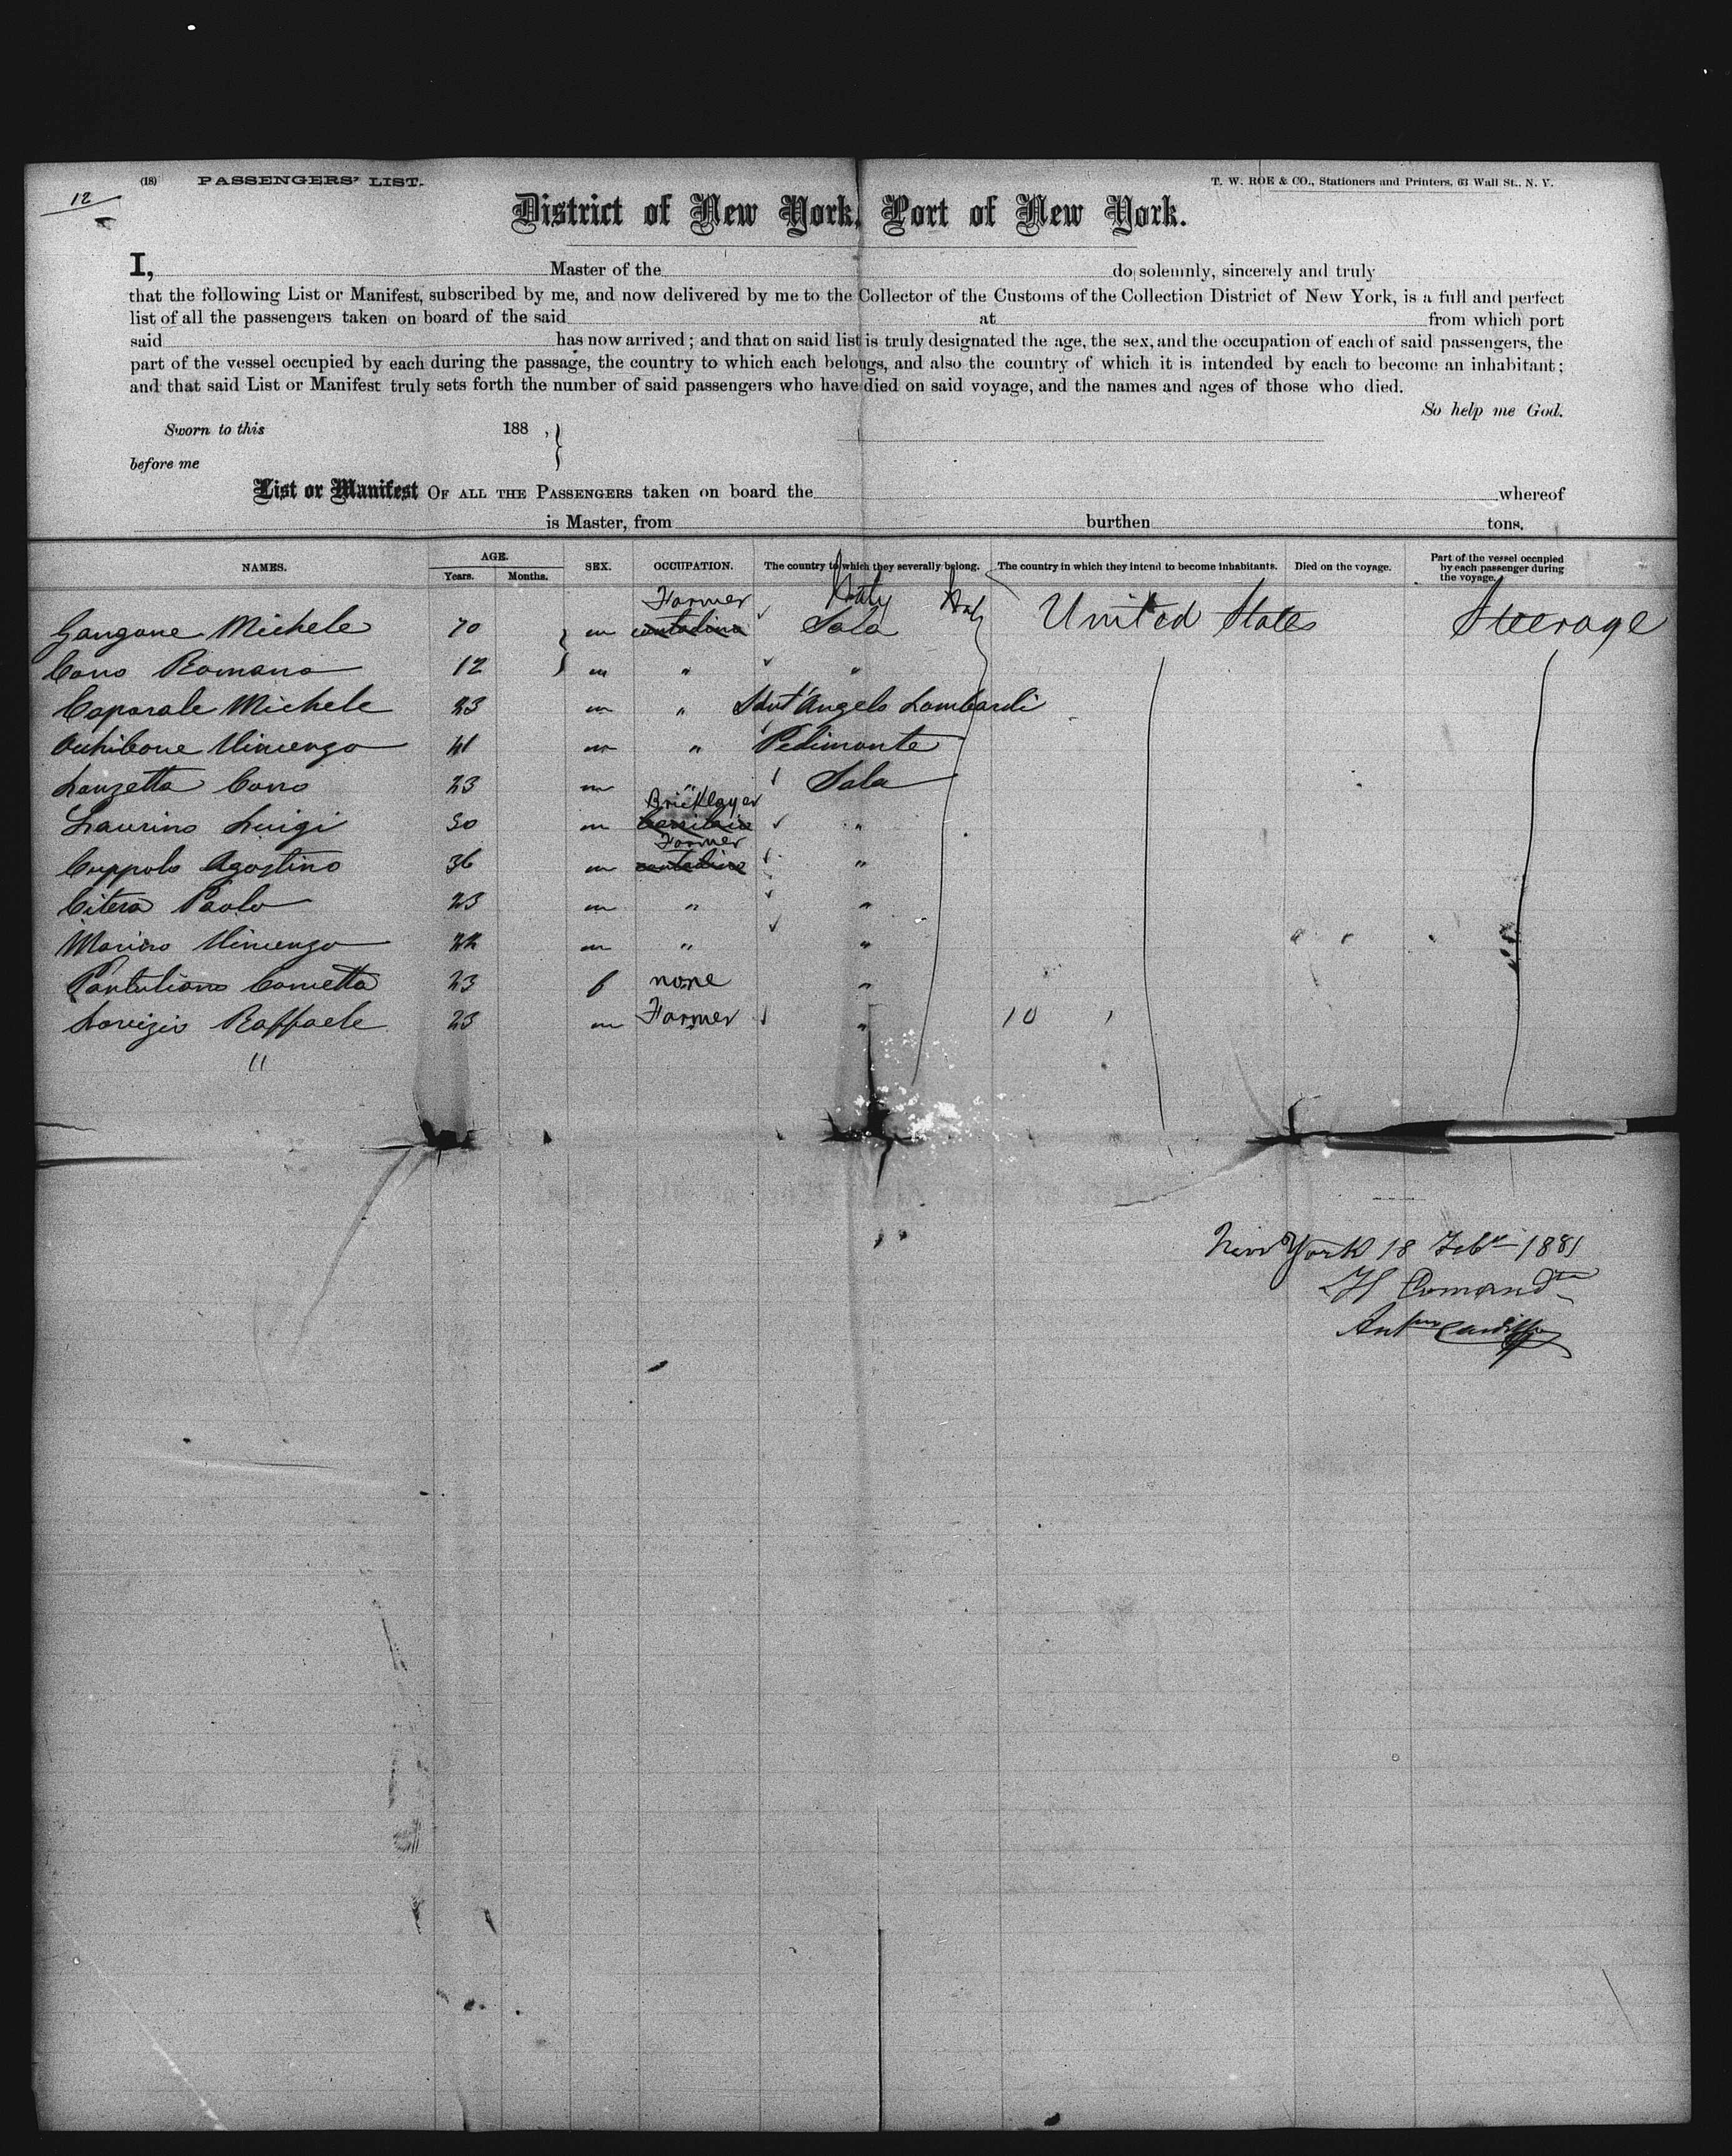 12
(18) PASSENGERS' LIST.
T. W. ROE & CO., Stationers and Printers, 63 Wall St., N. Y.
District of New York, Port of New York.
I, Master of the do solemnly, sincerely and truly
that the following List or Manifest, subscribed by me, and now delivered by me to the Collector of the Customs of the Collection District of New York, is a full and perfect
list of all the passengers taken on board of the said at from which port
said has now arrived; and that on said list is truly designated the age, the sex, and the occupation of each of said passengers, the
part of the vessel occupied by each during the passage, the country to which each belongs, and also the country of which it is intended by each to become an inhabitant;
and that said List or Manifest truly sets forth the number of said passengers who have died on said voyage, and the names and ages of those who died.
So help me God.
Sworn to this 188 ,
before me
List or Manifest OF ALL THE PASSENGERS taken on board the whereof
is Master, from burthen tons.
NAMES. AGE. Years. Months. SEX. OCCUPATION. The country to which they severally belong. The country in which they intend to become inhabitants. Died on the voyage. Part of the vessel occupied by each passenger during the voyage.
Farmer Italy Italy
Gangone Michele 70 m contadino Sala United States Steerage
Cono Romano 12 m " "
Caporale Michele 23 m " Sant'Angelo Lombardi
Vincenzo 41 m " Pedimonte
Lanzetta Cono 23 m " Sala
Bricklayer
Laurino Luigi 30 m "
Farmer
Cuppolo Agostino 36 m contadino "
Citera Paolo 23 m " "
Marino Vincenzo 22 m " "
Cometta 23 f none "
Raffaele 23 m Farmer " 10
11
New York 18 Feb 1881
Il Comand